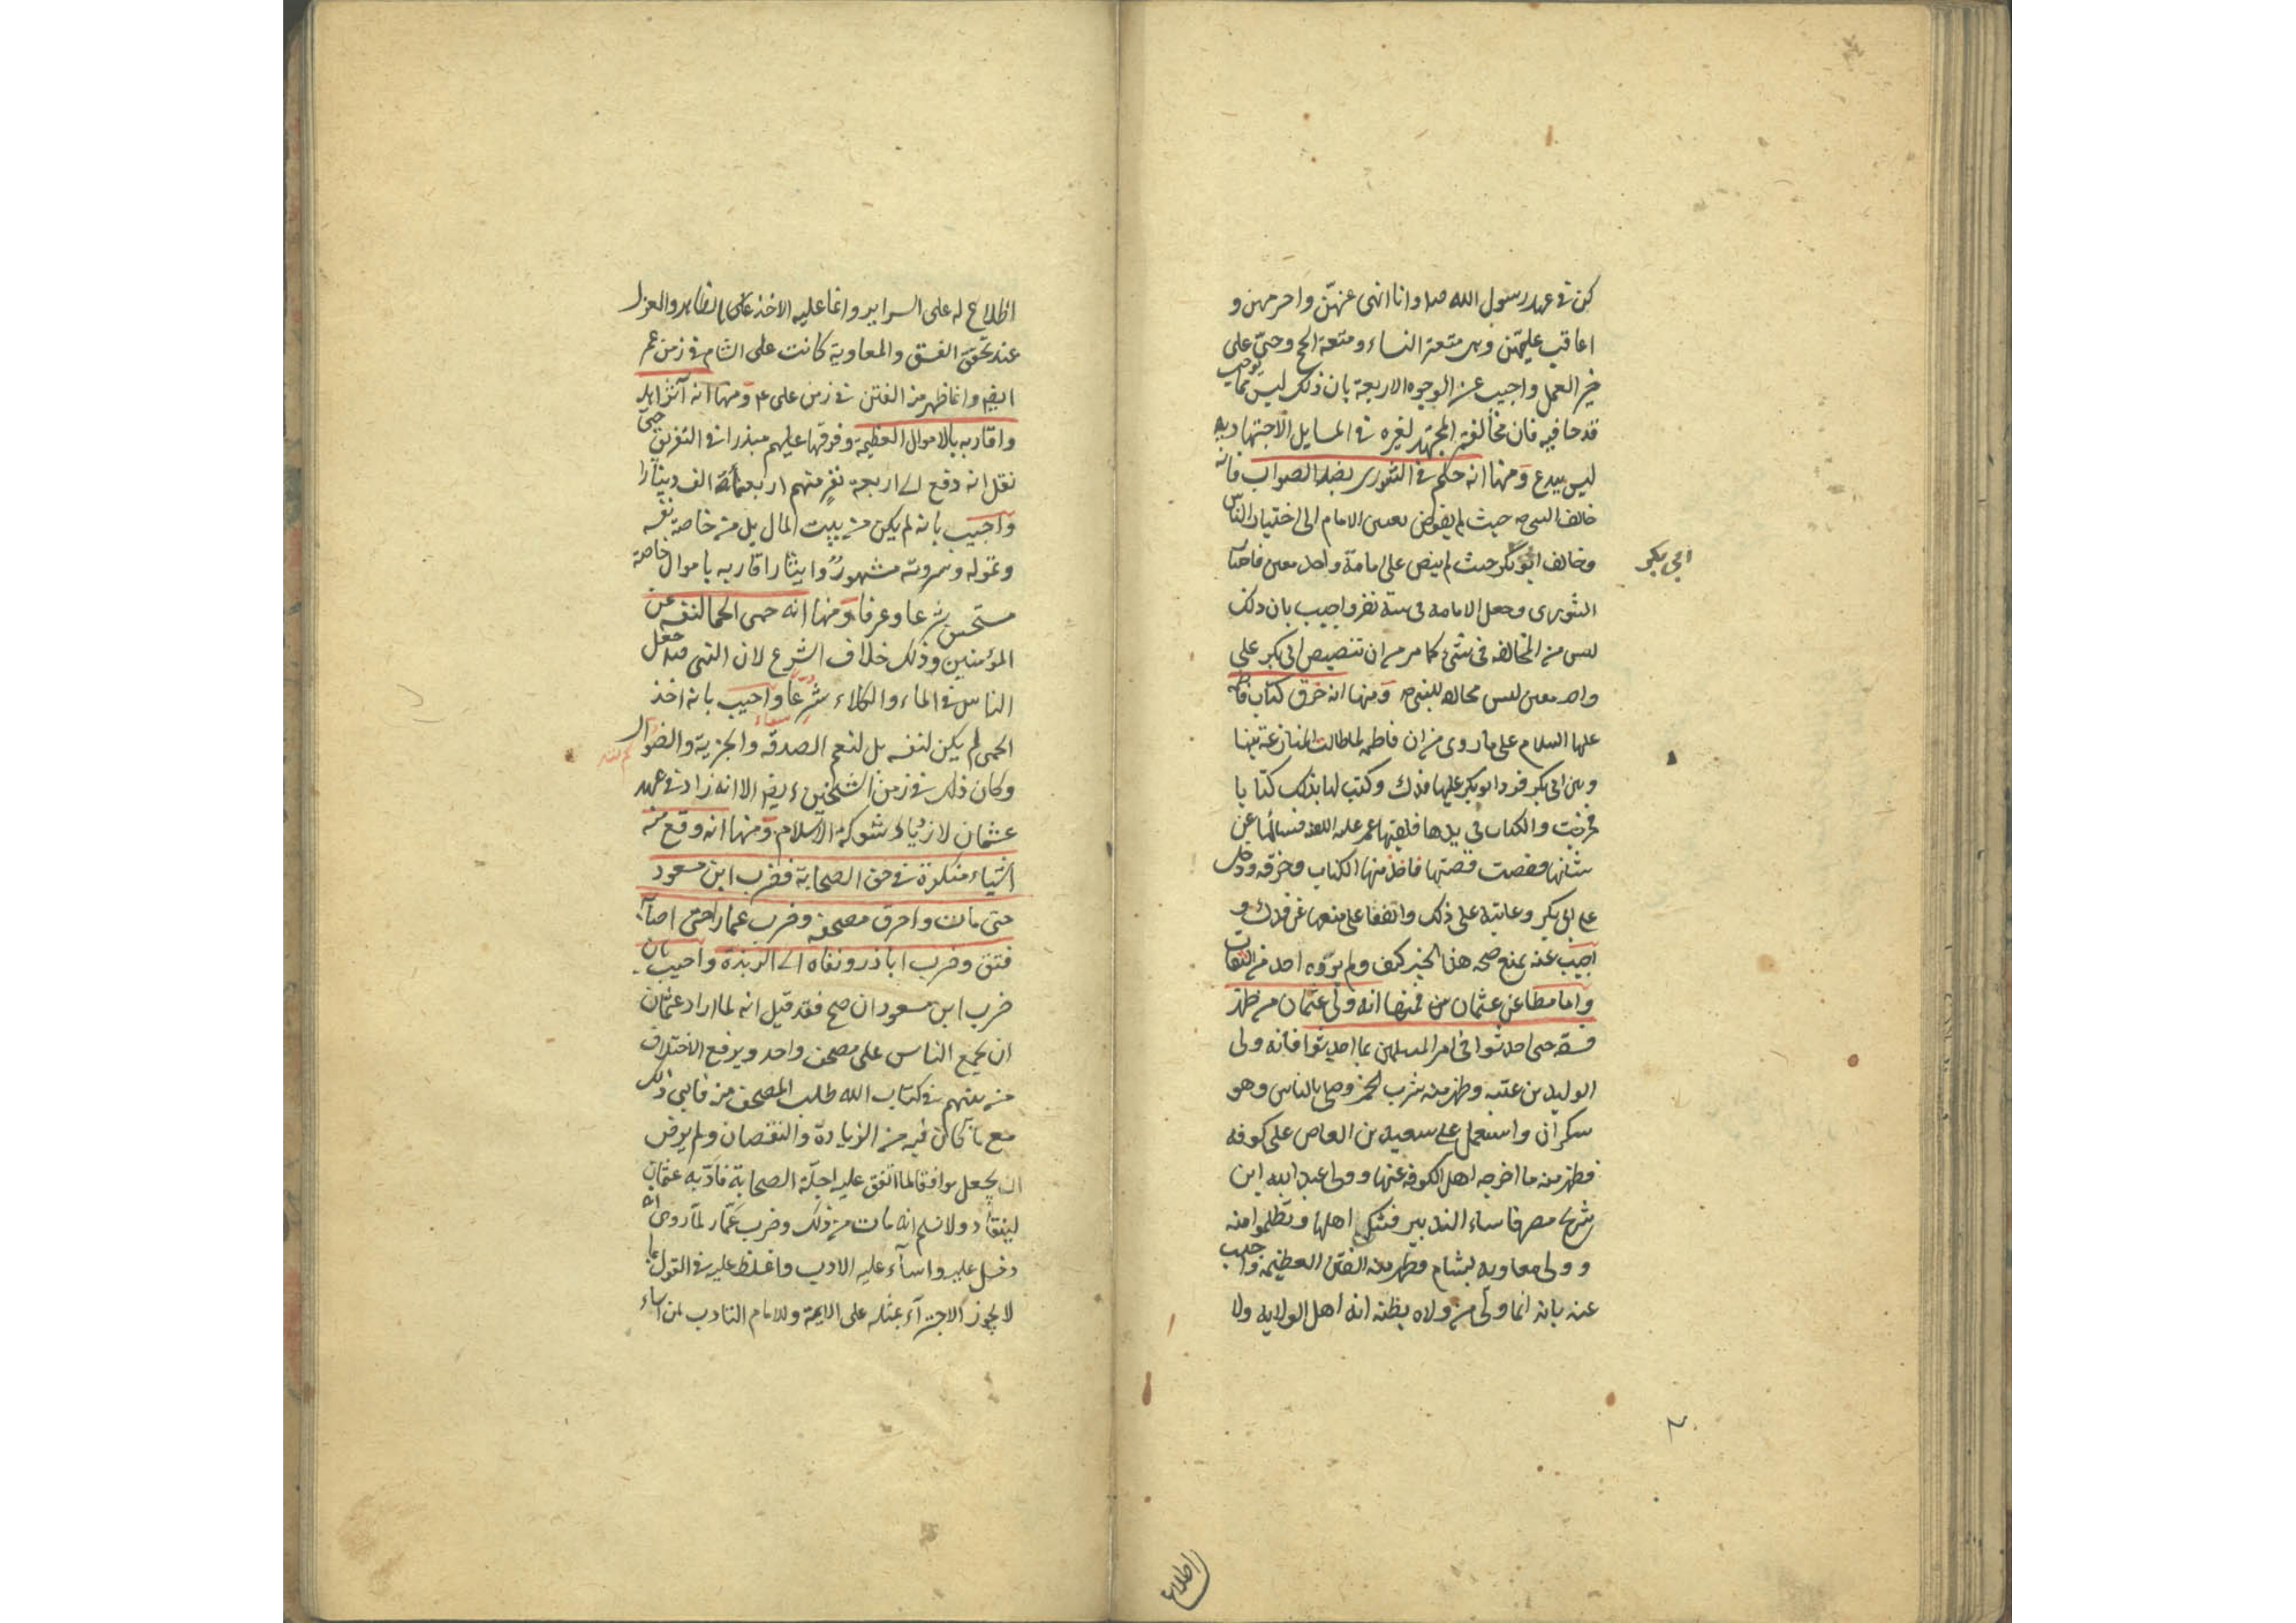 كن في عهد رسول الله صلعم وانا انهى عنهن واحرمهن و
اعاقب عليهن وهى متعة النساء ومتعة الحج وحىّ على
خير العمل واجيب عن الوجوه الاربعة بان ذلك ليس مما يوجب
قدحا فيه فان مخالفة المجتهد لغيره في المسايل الاجتهاديه
ليس ببدع ومنها انه حكم في الشورى بضد الصواب فانه
خالف النبي حيث لم يفوض تعيين الامام الى اختيار الناس
وخالف ابو بكر حيث لم ينص على امامة واحد معين فاختار
ابي بكر
الشورى وجعل الامامه في ستة نفر واجيب بان ذلك
ليس من المخالفه في شئ كما مر من ان تنصيص ابي بكر على
واحد معين ليس مخالفا للنبي ومنها انه خرق كتاب فاطمة
عليها السلام على ما روى من ان فاطمه لما طالت المنازعة بينها
وبين ابي بكر فرد ابو بكر عليها فدك وكتب لها بذلك كتابا
فخرجت والكتاب في يدها فلقيها عمر عليه اللعنه فسالها عن
شانها فقصت قصتها فاخذ منها الكتاب وخرقه ودخل
على ابي بكر وعاتبه على ذلك واتفقا على منعها عن فدك و
اجيب عنه بمنع صحه هذا الخبر كيف ولم يروه احد من الثقات
واما مطاعن عثمان فمنها انه ولى عثمان من ظهر
فسقه حتى احدثوا في امر المسلمين ما احدثوا فانه ولى
الوليد بن عتبه وظهر منه شرب الخمر وصلى بالناس وهو
سكران واستعمل على سعيد بن العاص على كوفه
فظهر منه ما اخرجه اهل الكوفه عنها وولى عبد الله ابن
سرح مصر فاساء التدبير فشكى اهلها وتظلموا منه
وولى معاويه بشام فظهر منه الفتن العظيمه واجيب
عنه بانه انما ولى من ولاه بظنه انه اهل الولايه ولا
اطلاع
اطلاع له على السراير وانما عليه الاخذ على بالظاهر والعزل
عند تحقق الفسق والمعاوية كانت على الشام في زمن عمر
ايضا وانما ظهر من الفتن في زمن على ع ومنها انه آثر اهله
واقاربه بالاموال العظيمة وفرقها عليهم مبذرا في التفريق حتى
نقل انه دفع الى اربعة نفر منهم اربعمائة الف دينارا
واجيب بانه لم يكن من بيت المال بل من خاصة نفسه
وتموله وثروته مشهور وايثار اقاربه باموال خاصة
مستحسن شرعا وعرفا ومنها انه حمى الحما لنفسه عن
المؤمنين وذلك خلاف الشرع لان النبي ص جعل
الناس في الماء والكلاء شرعا واجيب بانه اخذ
الحمى لم يكن لنفسه بل لنعم الصدقه والجزية والضوال
وكان ذلك في زمن الشيخين ايضا الا انه زاد في عهد
عثمان لازدياد شوكة الاسلام ومنها انه وقع منه
اشياء منكرة في حق الصحابة فضرب ابن مسعود
حتى مات واحرق مصحفه وضرب عمارا حتى اصابه
فتق وضرب اباذر ونفاه الى الربذة واجيب بان
ضرب ابن مسعود ان صح فقد قيل انه لما اراد عثمان
ان يجمع الناس على مصحف واحد ويرفع الاختلاف
من بينهم في كتاب الله طلب المصحف منه فابى ذلك
مع ما كان فيه من الزيادة والنقصان ولم يرض
ان يجعل موافقا لما اتفق عليه اجلة الصحابة فادبه عثمان
لينقاد ولا نسلم انه مات من ذلك وضرب عمار لما روى انه
دخل عليه واساء عليه الادب واغلظ عليه في القول بما
لا يجوز الاجتراء بمثله على الايمة وللامام التاديب لمن اساء